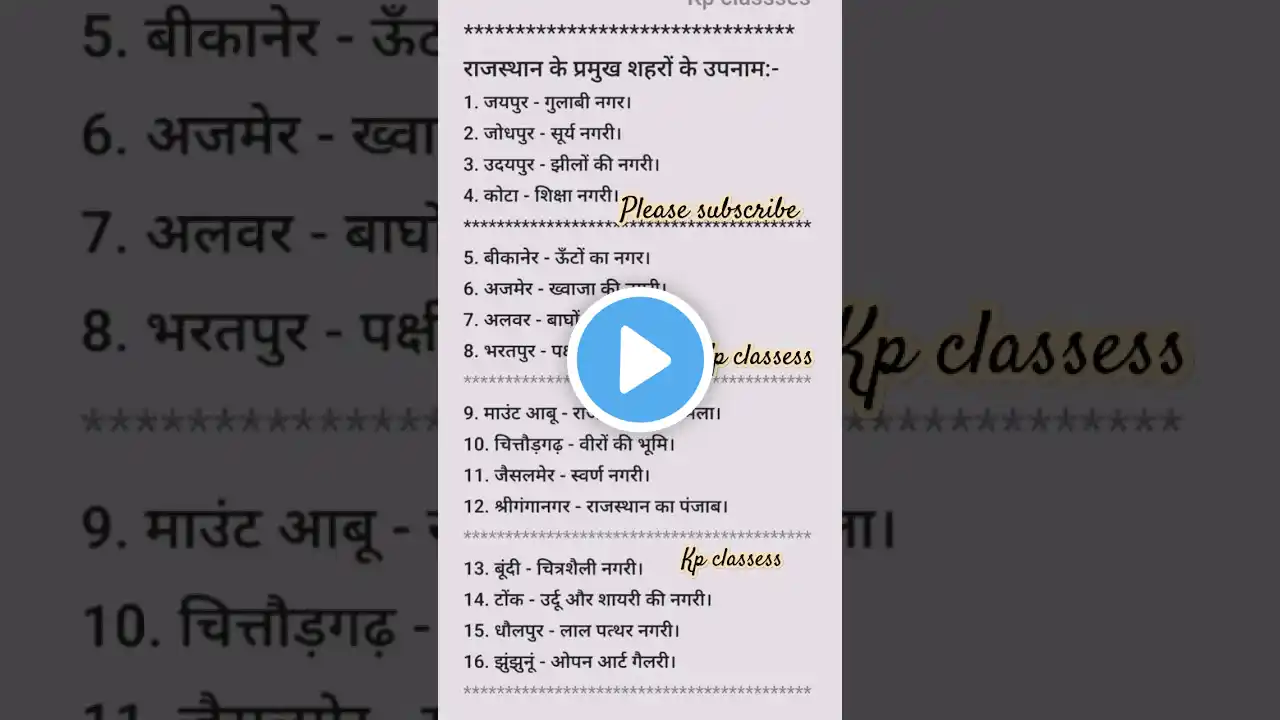 Kp classses
********************************
राजस्थान के प्रमुख शहरों के उपनाम:-
1. जयपुर - गुलाबी नगर।
2. जोधपुर - सूर्य नगरी।
3. उदयपुर - झीलों की नगरी।
4. कोटा - शिक्षा नगरी।
Please subscribe
****************************************
5. बीकानेर - ऊँटों का नगर।
6. अजमेर - ख्वाजा की नगरी।
7. अलवर - बाघों
8. भरतपुर -
Kp classess
****************************************
9. माउंट आबू -
10. चित्तौड़गढ़ - वीरों की भूमि।
11. जैसलमेर - स्वर्ण नगरी।
12. श्रीगंगानगर - राजस्थान का पंजाब।
****************************************
Kp classess
13. बूंदी - चित्रशैली नगरी।
14. टोंक - उर्दू और शायरी की नगरी।
15. धौलपुर - लाल पत्थर नगरी।
16. झुंझुनूं - ओपन आर्ट गैलरी।
****************************************
5. बीकानेर -
6. अजमेर -
7. अलवर -
8. भरतपुर -
Kp classess
9. माउंट आबू -
10. चित्तौड़गढ़ -